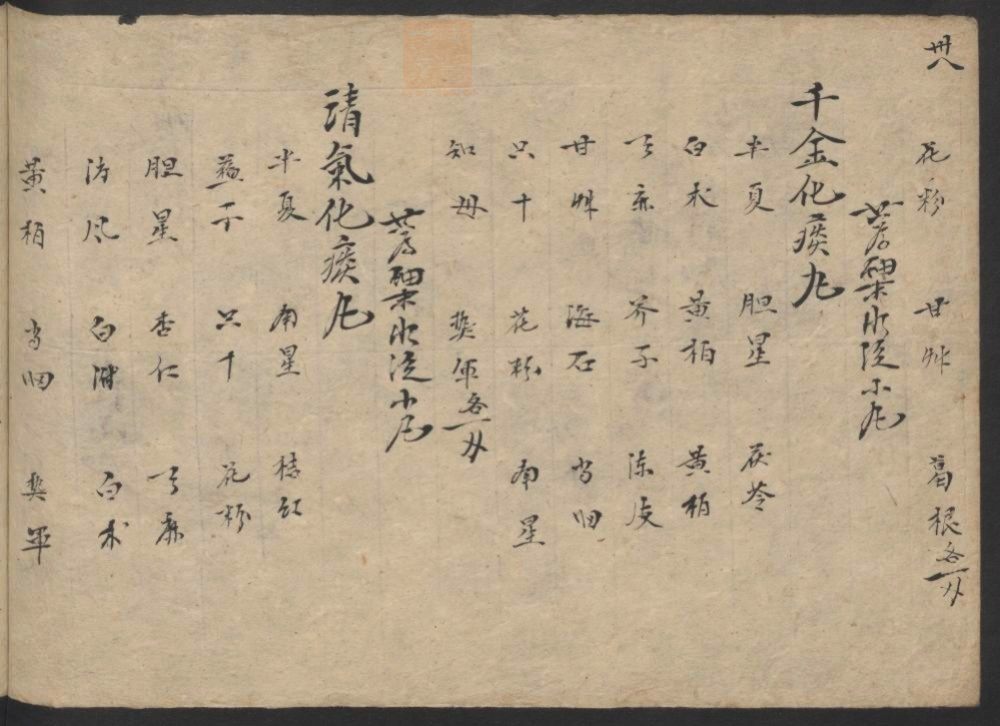 卅八
花粉 甘艸 葛根各一
共為細末水泛小丸
千金化痰丸
半夏 胆星 茯苓
白术 黄柏 黄柏
天麻 芥子 陈皮
甘艸 海石 当归
只十 花粉 南星
知母 煨軍各一
共為細末水泛小丸
清氣化痰丸
半夏 南星 桔红
蘓子 只十 花粉
胆星 杏仁 天麻
防风 白附 白术
黄柏 当归